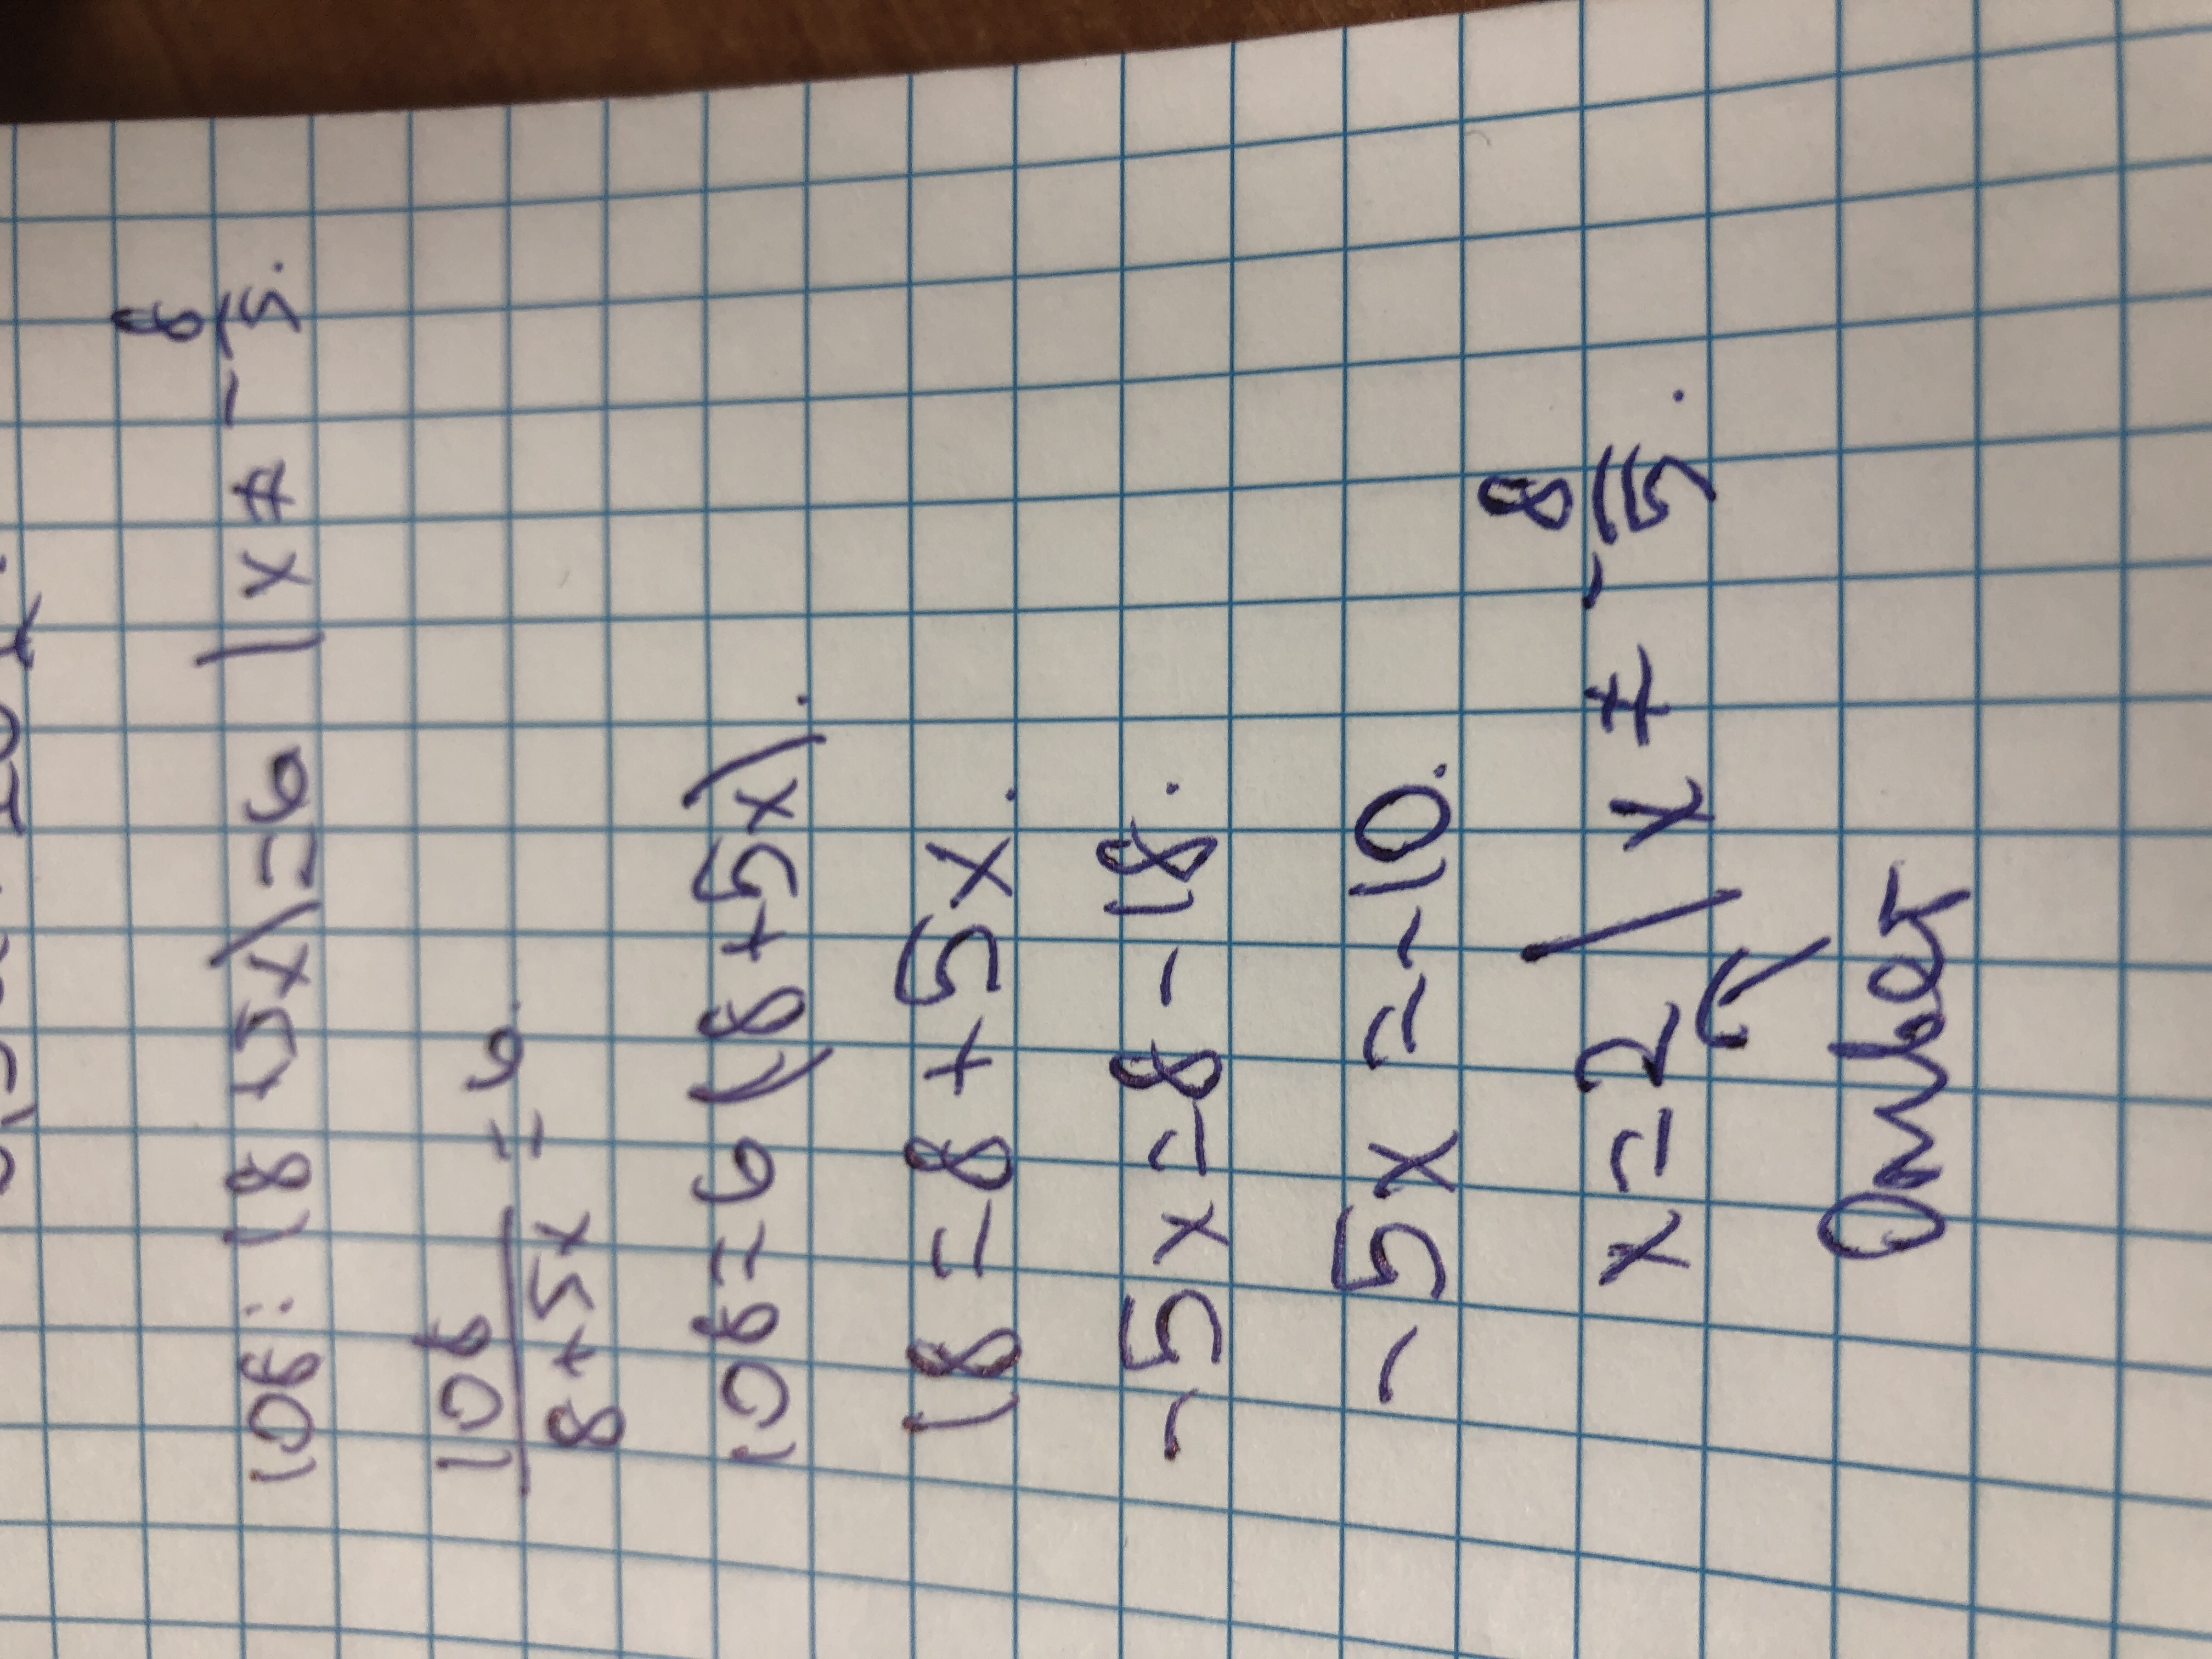 108 : (8 + 5x) = 6 | x ≠ - 8/5.
108/8+5x = 6.
108 = 6 (8 + 5x).
18 = 8 + 5x.
-5x = 8 - 18.
-5x = -10.
x = 2 / x ≠ - 8/5.
Ответ